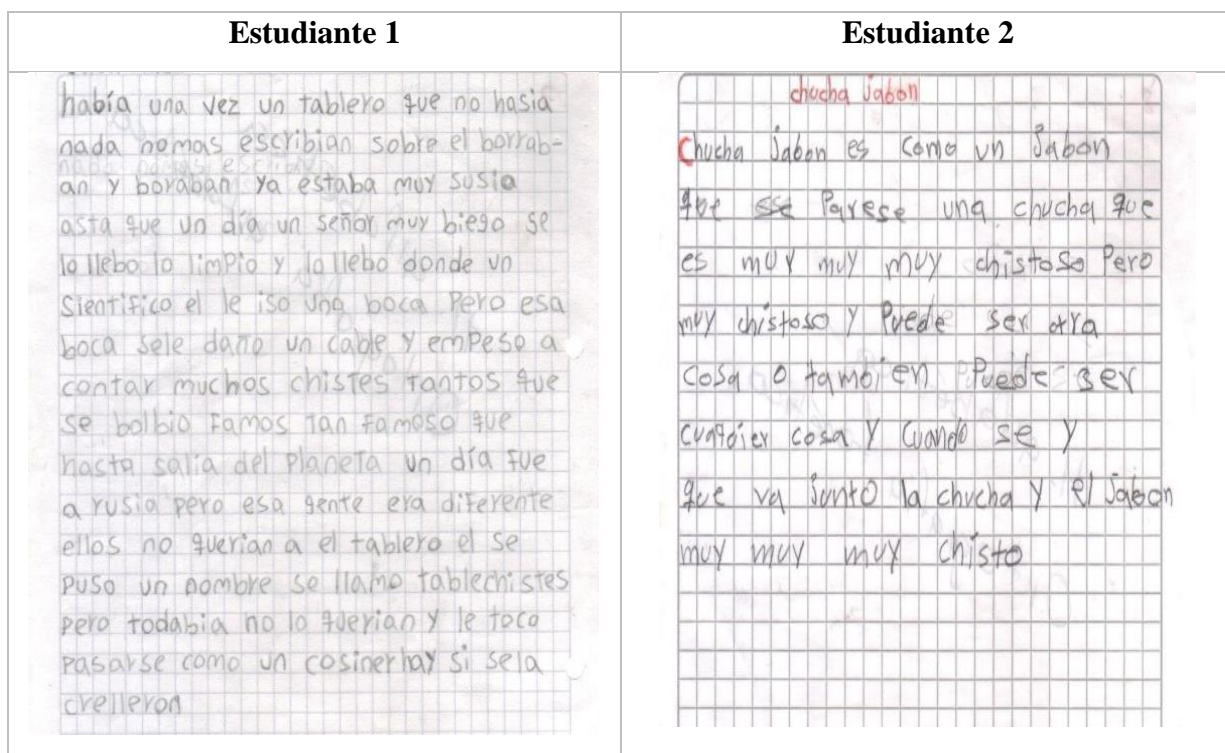 Estudiante 1
había una vez un tablero que no hasia
nada nomas escribian sobre el borrab-
an y boraban ya estaba muy susia
asta que un día un señor muy biego se
lo llebo lo limpio y lo llebo donde un
sientifico el le iso una boca pero esa
boca sele daño un cable y empeso a
contar muchos chistes tantos que
se bolbio famos tan famoso que
hasta salia del planeta un día fue
a rusia pero esa gente era diferente
ellos no querian a el tablero el se
puso un nombre se llamo tablechistes
pero todabia no lo querian y le toco
pasarse como un cosiner hay si sela
crelleron
Estudiante 2
chucha Jabon
Chucha Jabon es como un Jabon
que parese una chucha que
es muy muy muy chistoso Pero
muy chistoso y Puede ser otra
cosa o tambien Puede ser
cuaqoier cosa y cuando se y
que va Junto la chucha y el Jabon
muy muy muy chisto